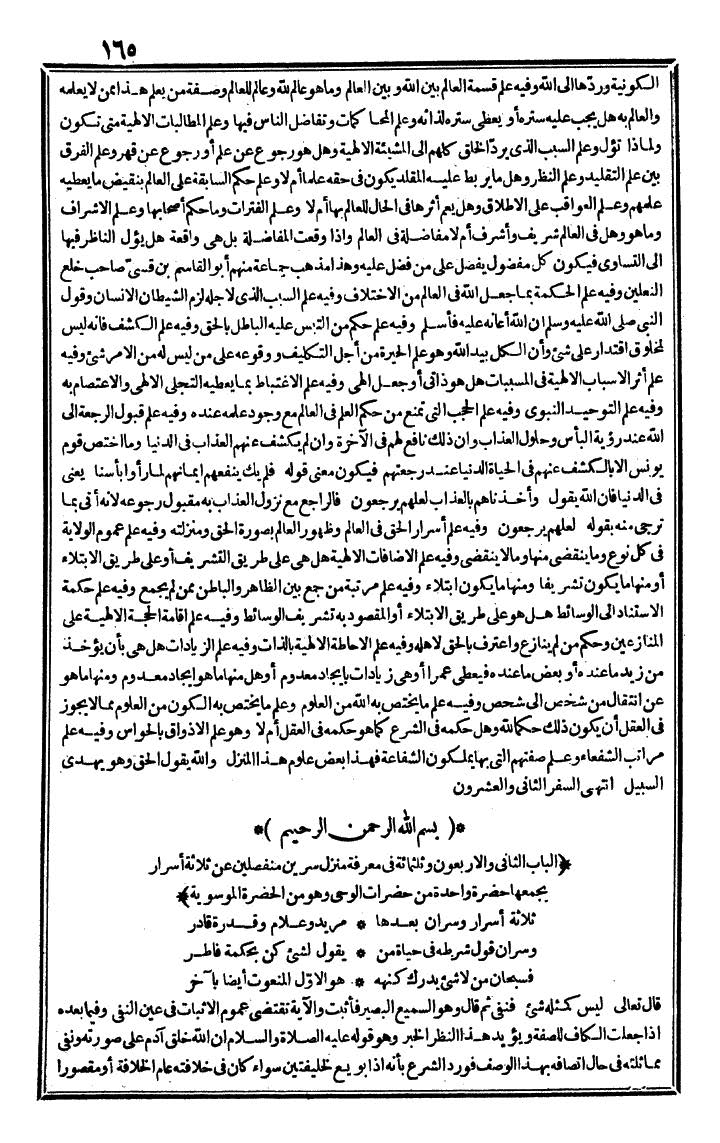 ١٦٥
الكونية وردّها الى الله وفيه علم قسمة العالم بين الله وبين العالم وما هو عالم لله وعالم للعالم وصفة من يعلم هذا ممن لا يعلمه
والعالم به هل يجب عليه ستره أو يعطى ستره لذاته وعلم المحاكمات وتفاضل الناس فيها وعلم المطالبات الالهية متى تكون
ولماذا تؤل وعلم السبب الذى يردّ الخلق كلهم الى المشيئة الالهية وهل هو رجوع عن علم أو رجوع عن قهر وعلم الفرق
بين علم التقليد وعلم النظر وهل ما يربط عليه المقلد يكون فى حقه علما أم لا وعلم حكم السابقة على العالم بنقيض ما يعطيه
علمهم وعلم العواقب على الاطلاق وهل يعم أثرها فى الحال للعالم بها أم لا وعلم الفترات وما حكم أصحابها وعلم الاشراف
وما هو وهل فى العالم شريف وأشرف أم لا مفاضلة فى العالم واذا وقعت المفاضلة بل هى واقعة هل يؤل الناظر فيها
الى التساوى فيكون كل مفضول يفضل على من فضل عليه وهذا مذهب جماعة منهم أبو القاسم بن قسىّ صاحب خلع
النعلين وفيه علم الحكمة بما جعل الله فى العالم من الاختلاف وفيه علم السبب الذى لاجله لزم الشيطان الانسان وقول
النبى صلى الله عليه وسلم ان الله أعانه عليه فأسلم وفيه علم حكم من التبس عليه الباطل بالحق وفيه علم الكشف فانه ليس
لمخلوق اقتدار على شئ وأن الكل بيد الله وهو علم الحيرة من أجل التكليف ووقوعه على من ليس له من الامر شئ وفيه
علم أثر الاسباب الالهية فى المسببات هل هو ذاتى أو جعل الهى وفيه علم الاغتباط بما يعطيه التجلى الالهى والاعتصام به
وفيه علم التوحيد النبوى وفيه علم الحجب التى تمنع من حكم العلم فى العالم مع وجود علمه عنده وفيه علم قبول الرجعة الى
الله عند رؤية البأس وحلول العذاب وان ذلك نافع لهم فى الآخرة وان لم يكشف عنهم العذاب فى الدنيا وما اختص قوم
يونس الا بالكشف عنهم فى الحياة الدنيا عند رجعتهم فيكون معنى قوله فلم يك ينفعهم ايمانهم لما رأوا بأسنا يعنى
فى الدنيا فان الله يقول وأخذناهم بالعذاب لعلهم يرجعون فالراجع مع نزول العذاب به مقبول رجوعه لانه أتى بما
ترجى منه بقوله لعلهم يرجعون وفيه علم أسرار الحق فى العالم وظهور العالم بصورة الحق ومنزلته وفيه علم عموم الولاية
فى كل نوع وما ينقضى منها وما لا ينقضى وفيه علم الاضافات الالهية هل هى على طريق التشريف أو على طريق الابتلاء
أو منها ما يكون تشريفا ومنها ما يكون ابتلاء وفيه علم مرتبة من جمع بين الظاهر والباطن ممن لم يجمع وفيه علم حكمة
الاستناد الى الوسائط هل هو على طريق الابتلاء أو المقصود به تشريف الوسائط وفيه علم اقامة الحجة الالهية على
المنازعين وحكم من لم ينازع واعترف بالحق لاهله وفيه علم الاحاطة الالهية بالذات وفيه علم الزيادات هل هى بأن يؤخذ
من زيد ما عنده أو بعض ما عنده فيعطى عمرا أو هى زيادات بايجاد معدوم أو هل منها ما هو ايجاد معدوم ومنها ما هو
عن انتقال من شخص الى شخص وفيه علم ما يختص به الله من العلوم وعلم ما يختص به الكون من العلوم مما لا يجوز
فى العقل أن يكون ذلك حكما لله وهل حكمه فى الشرع كما هو حكمه فى العقل أم لا وهو علم الاذواق بالحواس وفيه علم
مراتب الشفعاء وعلم صفتهم التى بها يملكون الشفاعة فهذا بعض علوم هذا المنزل والله يقول الحق وهو يهدى
السبيل انتهى السفر الثانى والعشرون
*( بسم الله الرحمن الرحيم )*
﴿الباب الثانى والاربعون وثلثمائة فى معرفة منزل سرين منفصلين عن ثلاثة أسرار
يجمعها حضرة واحدة من حضرات الوحى وهو من الحضرة الموسوية﴾
ثلاثة أسرار وسران بعدها * مريد وعلام وقدرة قادر
وسران قول شرطه فى حياة من * يقول لشئ كن بحكمة فاطر
فسبحان من لا شئ يدرك كنهه * هو الاوّل المنعوت أيضا بآخر
قال تعالى ليس كمثله شئ فنفى ثم قال وهو السميع البصير فأثبت والآية تقتضى عموم الاثبات فى عين النفى وفيما بعده
اذا جعلت الكاف للصفة ويؤيد هذا النظر الخبر وهو قوله عليه الصلاة والسلام ان الله خلق آدم على صورته ونفى
مماثلته فى حال اتصافه بهذا الوصف فورد الشرع بأنه اذا بويع لخليفتين سواء كان فى خلافته عام الخلافة أو مقصورا